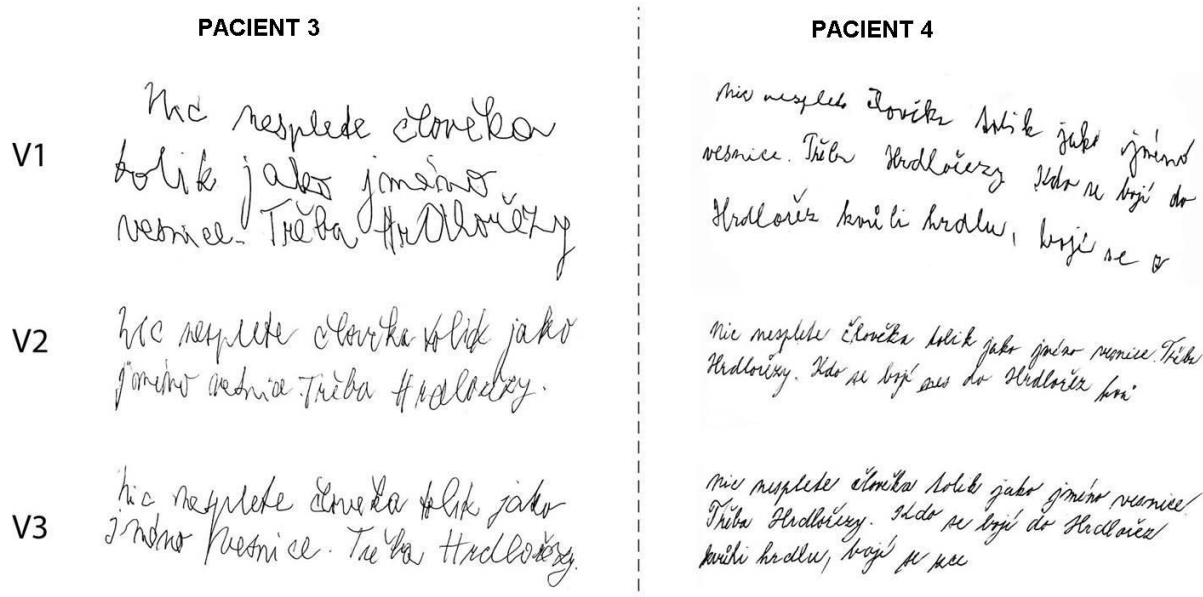 PACIENT 3
V1
Nic nesplete člověka
tolik jako jméno
vesnice. Třeba Hrdlořezy
V2
Nic nesplete člověka tolik jako
jméno vesnice. Třeba Hrdlořezy.
V3
Nic nesplete člověka tolik jako
jméno vesnice. Třeba Hrdlořezy.
PACIENT 4
Nic nesplete člověka tolik jako jméno
vesnice. Třeba Hrdlořezy Kdo se bojí do
Hrdlořez kvůli hrdlu, bojí se
Nic nesplete člověka tolik jako jméno vesnice. Třeba
Hrdlořezy. Kdo se bojí do Hrdlořez
Nic nesplete člověka tolik jako jméno vesnice.
Třeba Hrdlořezy. Kdo se bojí do Hrdlořez
kvůli hrdlu, bojí se